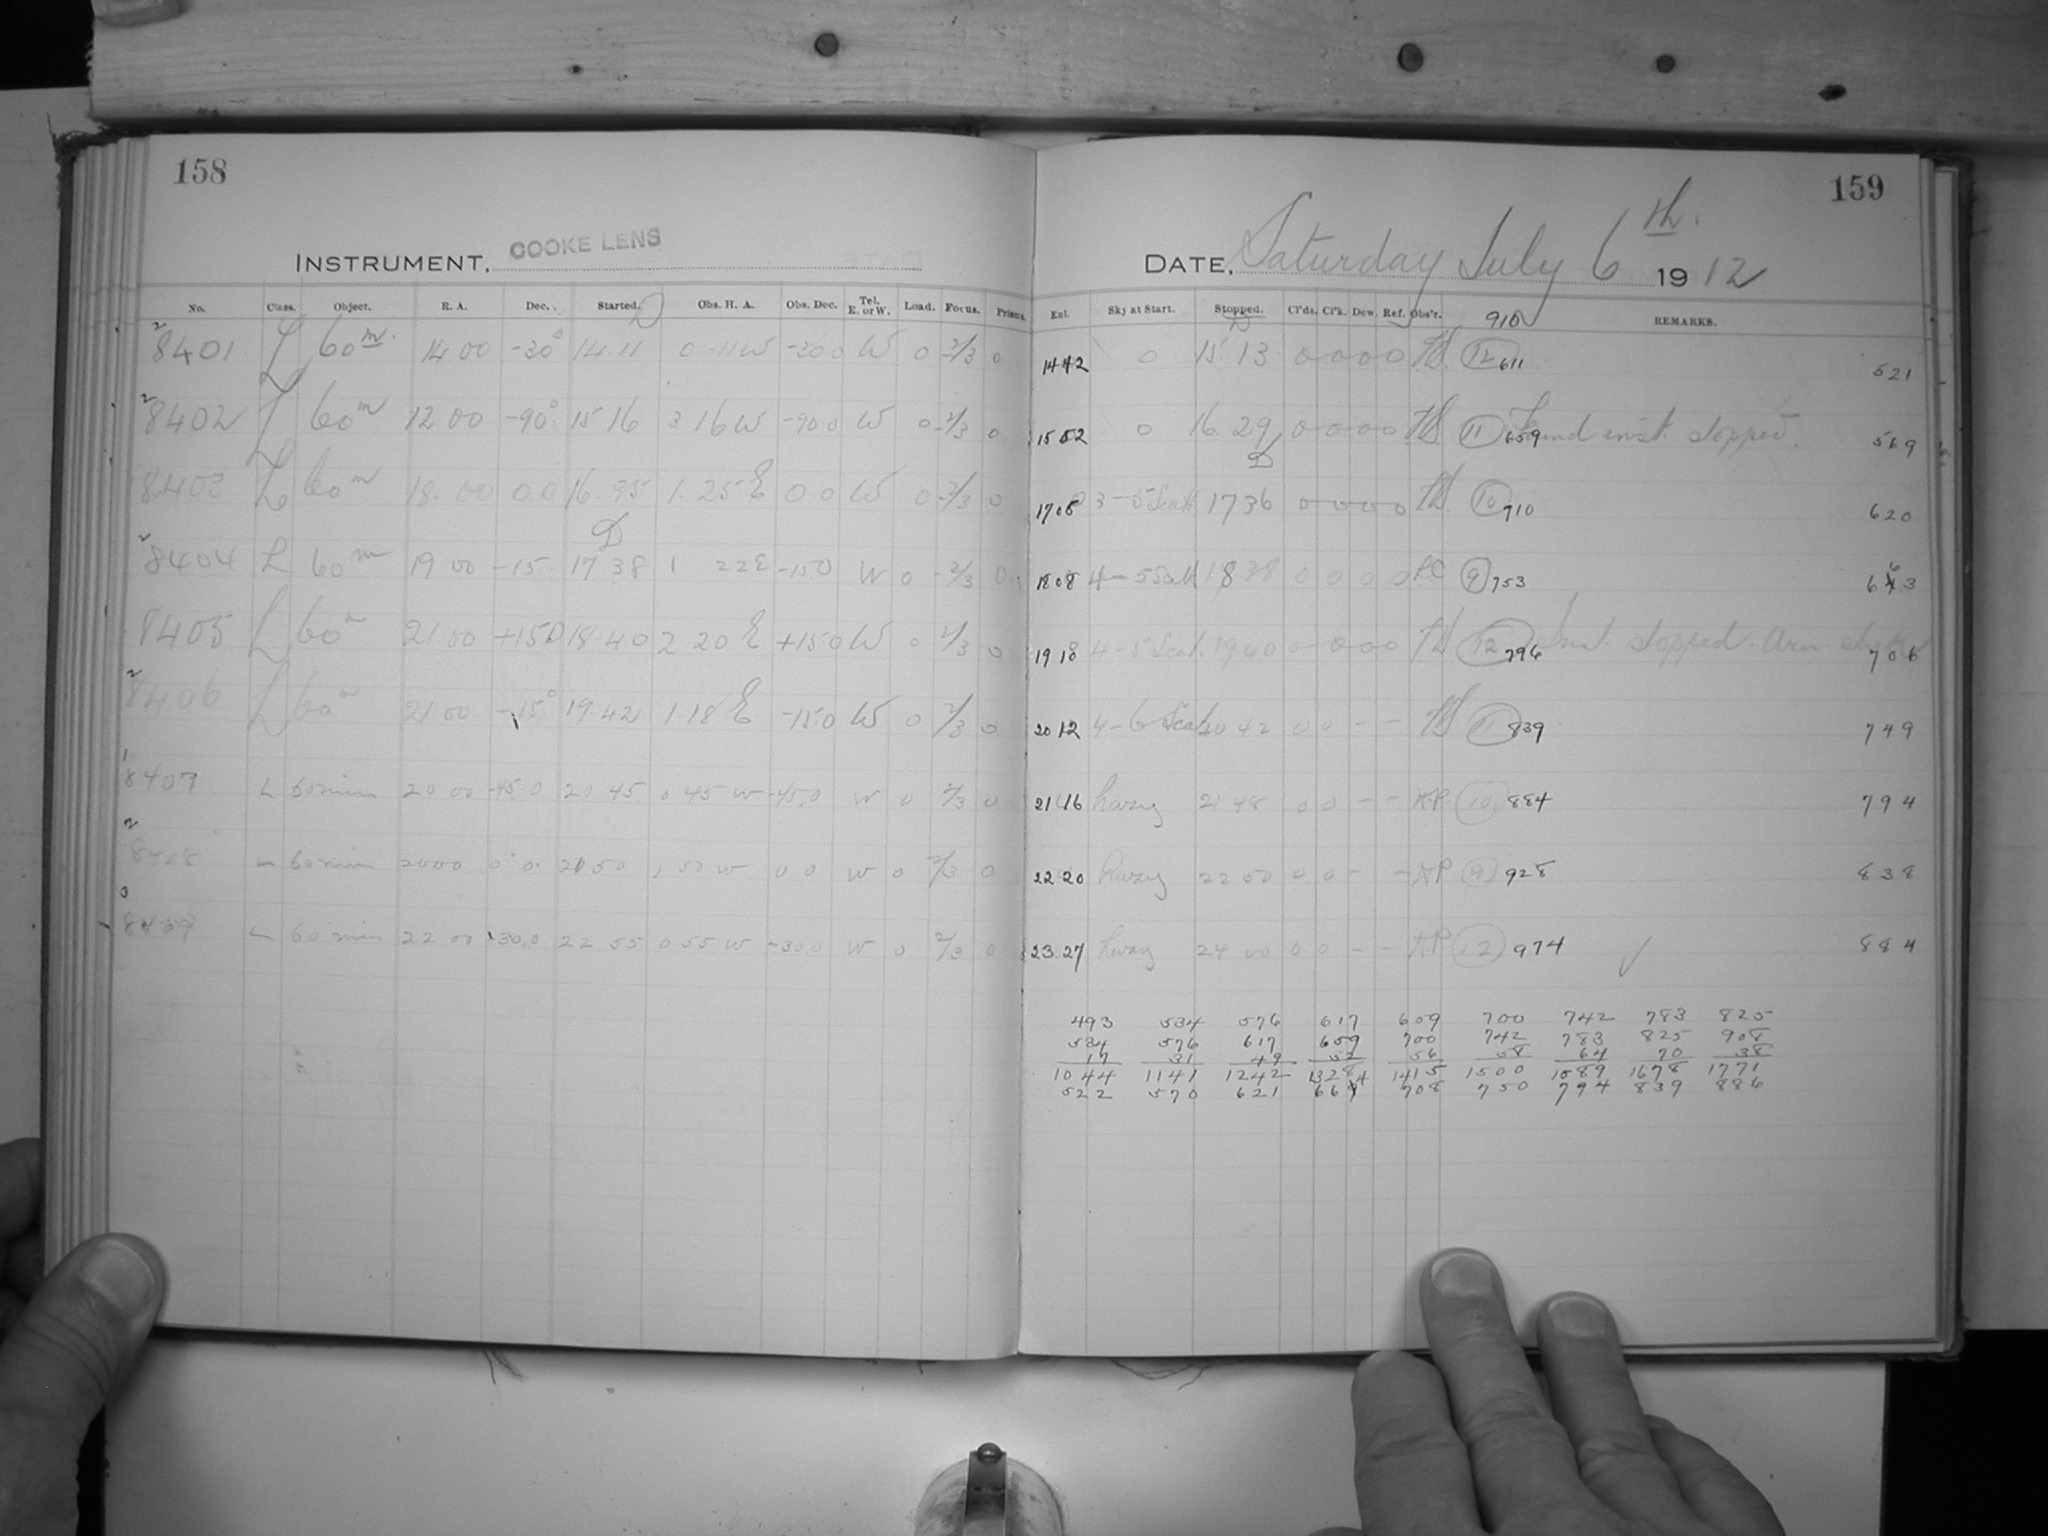 158
INSTRUMENT. COOKE LENS
No. Class. Object. R. A. Dec. Started. Obs. H. A. Obs. Dec. Tel. E. or W. Load. Focus. Prisms.
8401 L 60m. 14 00 -30° 14 11 0 11 W -30 0 W 0 2/3 0
8402 L 60m 12 00 -90° 15 16 3 16 W -90 0 W 0 -2/3 0
8403 L 60m 18. 00 0.0 16 35 1. 25 E 0.0 W 0 -2/3 0
8404 L 60m 19 00 -15 17 38 1 22 E -15 0 W 0 -2/3 0
8405 L 60m 21. 00 +15 0 18 40 2 20 E +15 0 W 0 2/3 0
8406 L 60m 21 00 -15° 19. 42 1. 18 E -15.0 W 0 2/3 0
8407 L 60 min 20 00 -45.0 20 45 0 45 W -45.0 W 0 2/3 0
8408 L 60 min 20 00 0 0 21 50 1 50 W 0 0 W 0 2/3 0
8409 L 60 min 22 00 -30.0 22 55 0 55 W -30.0 W 0 2/3 0
159
DATE, Saturday July 6th. 1912
Exl. Sky at Start. Stopped. Cl'ds. Cl'k. Dew. Ref. Obs'r. 910 REMARKS.
14 42 0 15 13 0 0 0 0 12 611 521
15 52 0 16. 29 0 0 0 0 11 659 Found inst. stopped. 569
17 05 3-5 Scat 17 36 0 0 0 0 10 710 620
18 08 4-5 Scat 18 38 0 0 0 0 9 753
19 10 4-5 Scat. 19 40 0 0 0 0 12 796 Inst. stopped. 706
20 12 4-6 Scat 20 42 0 0 - - 11 839 749
21 16 hazy 21 48 0 0 - - 10 884 794
22 20 hazy 22 50 0 0 - - 9 928 838
23 27 hazy 24 00 0 0 - - 12 974 ✓ 884
493 534 576 617 659 700 742 783 825
534 576 617 659 700 742 783 825 908
17 31 49 52 56 58 64 70 38
1044 1141 1242 1328 1415 1500 1589 1678 1771
522 570 621 664 708 750 794 839 886